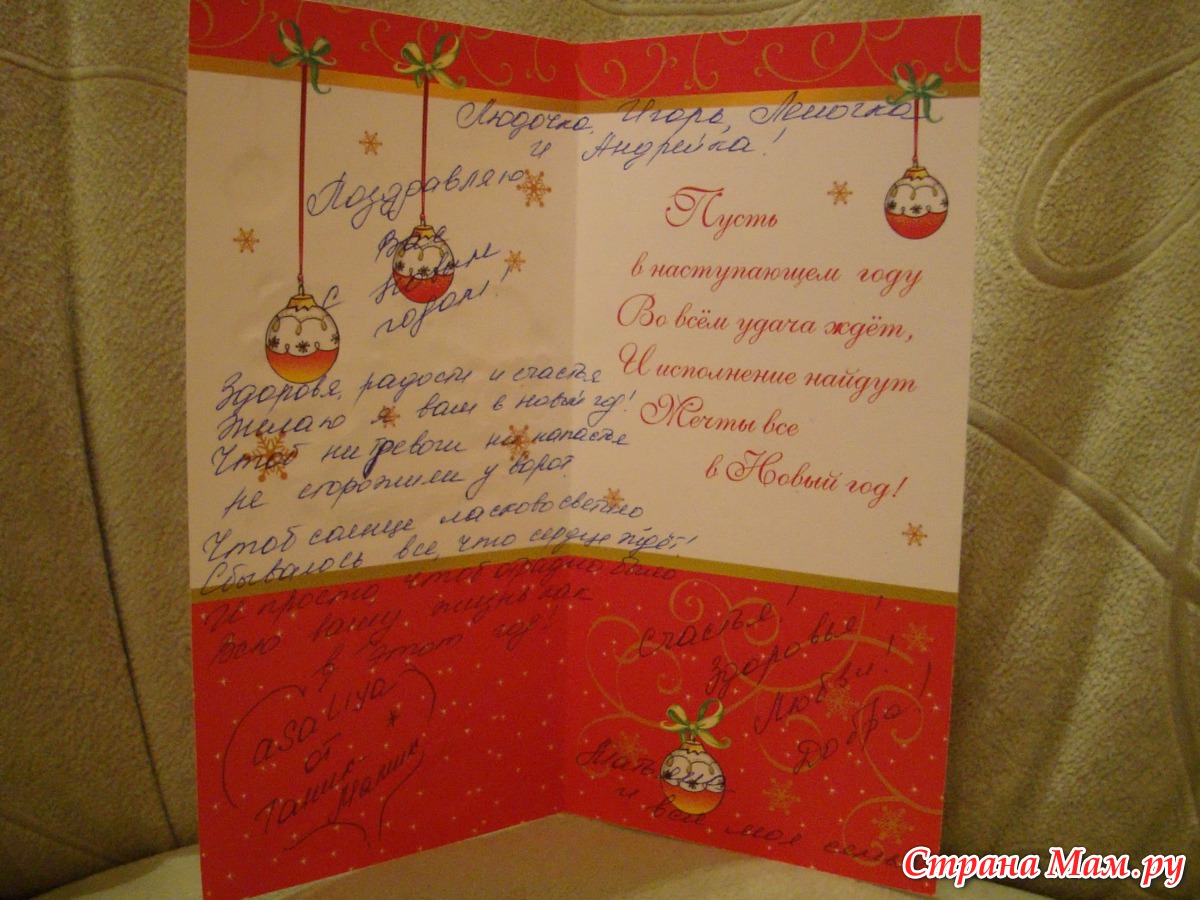 Людочка, Игорь, Леночка
и Андрейка!
Поздравляю
Вас
с Новым
годом!
Здоровья, радости и счастья
Желаю я вам в новый год!
Чтоб ни тревоги ни напастья
не сторожили у ворот.
Чтоб солнце ласково светило
Сбывалось все, что сердце ждёт!
И просто чтоб отрадно было
Всю вашу жизнь как
в этот год!
asaliya
от
Пусть
в наступающем году
Во всём удача ждёт,
И исполнение найдут
Мечты все
в Новый год!
Счастья!
Здоровья!
Любви!
Добра!
и вся моя семья
Страна Мам.ру